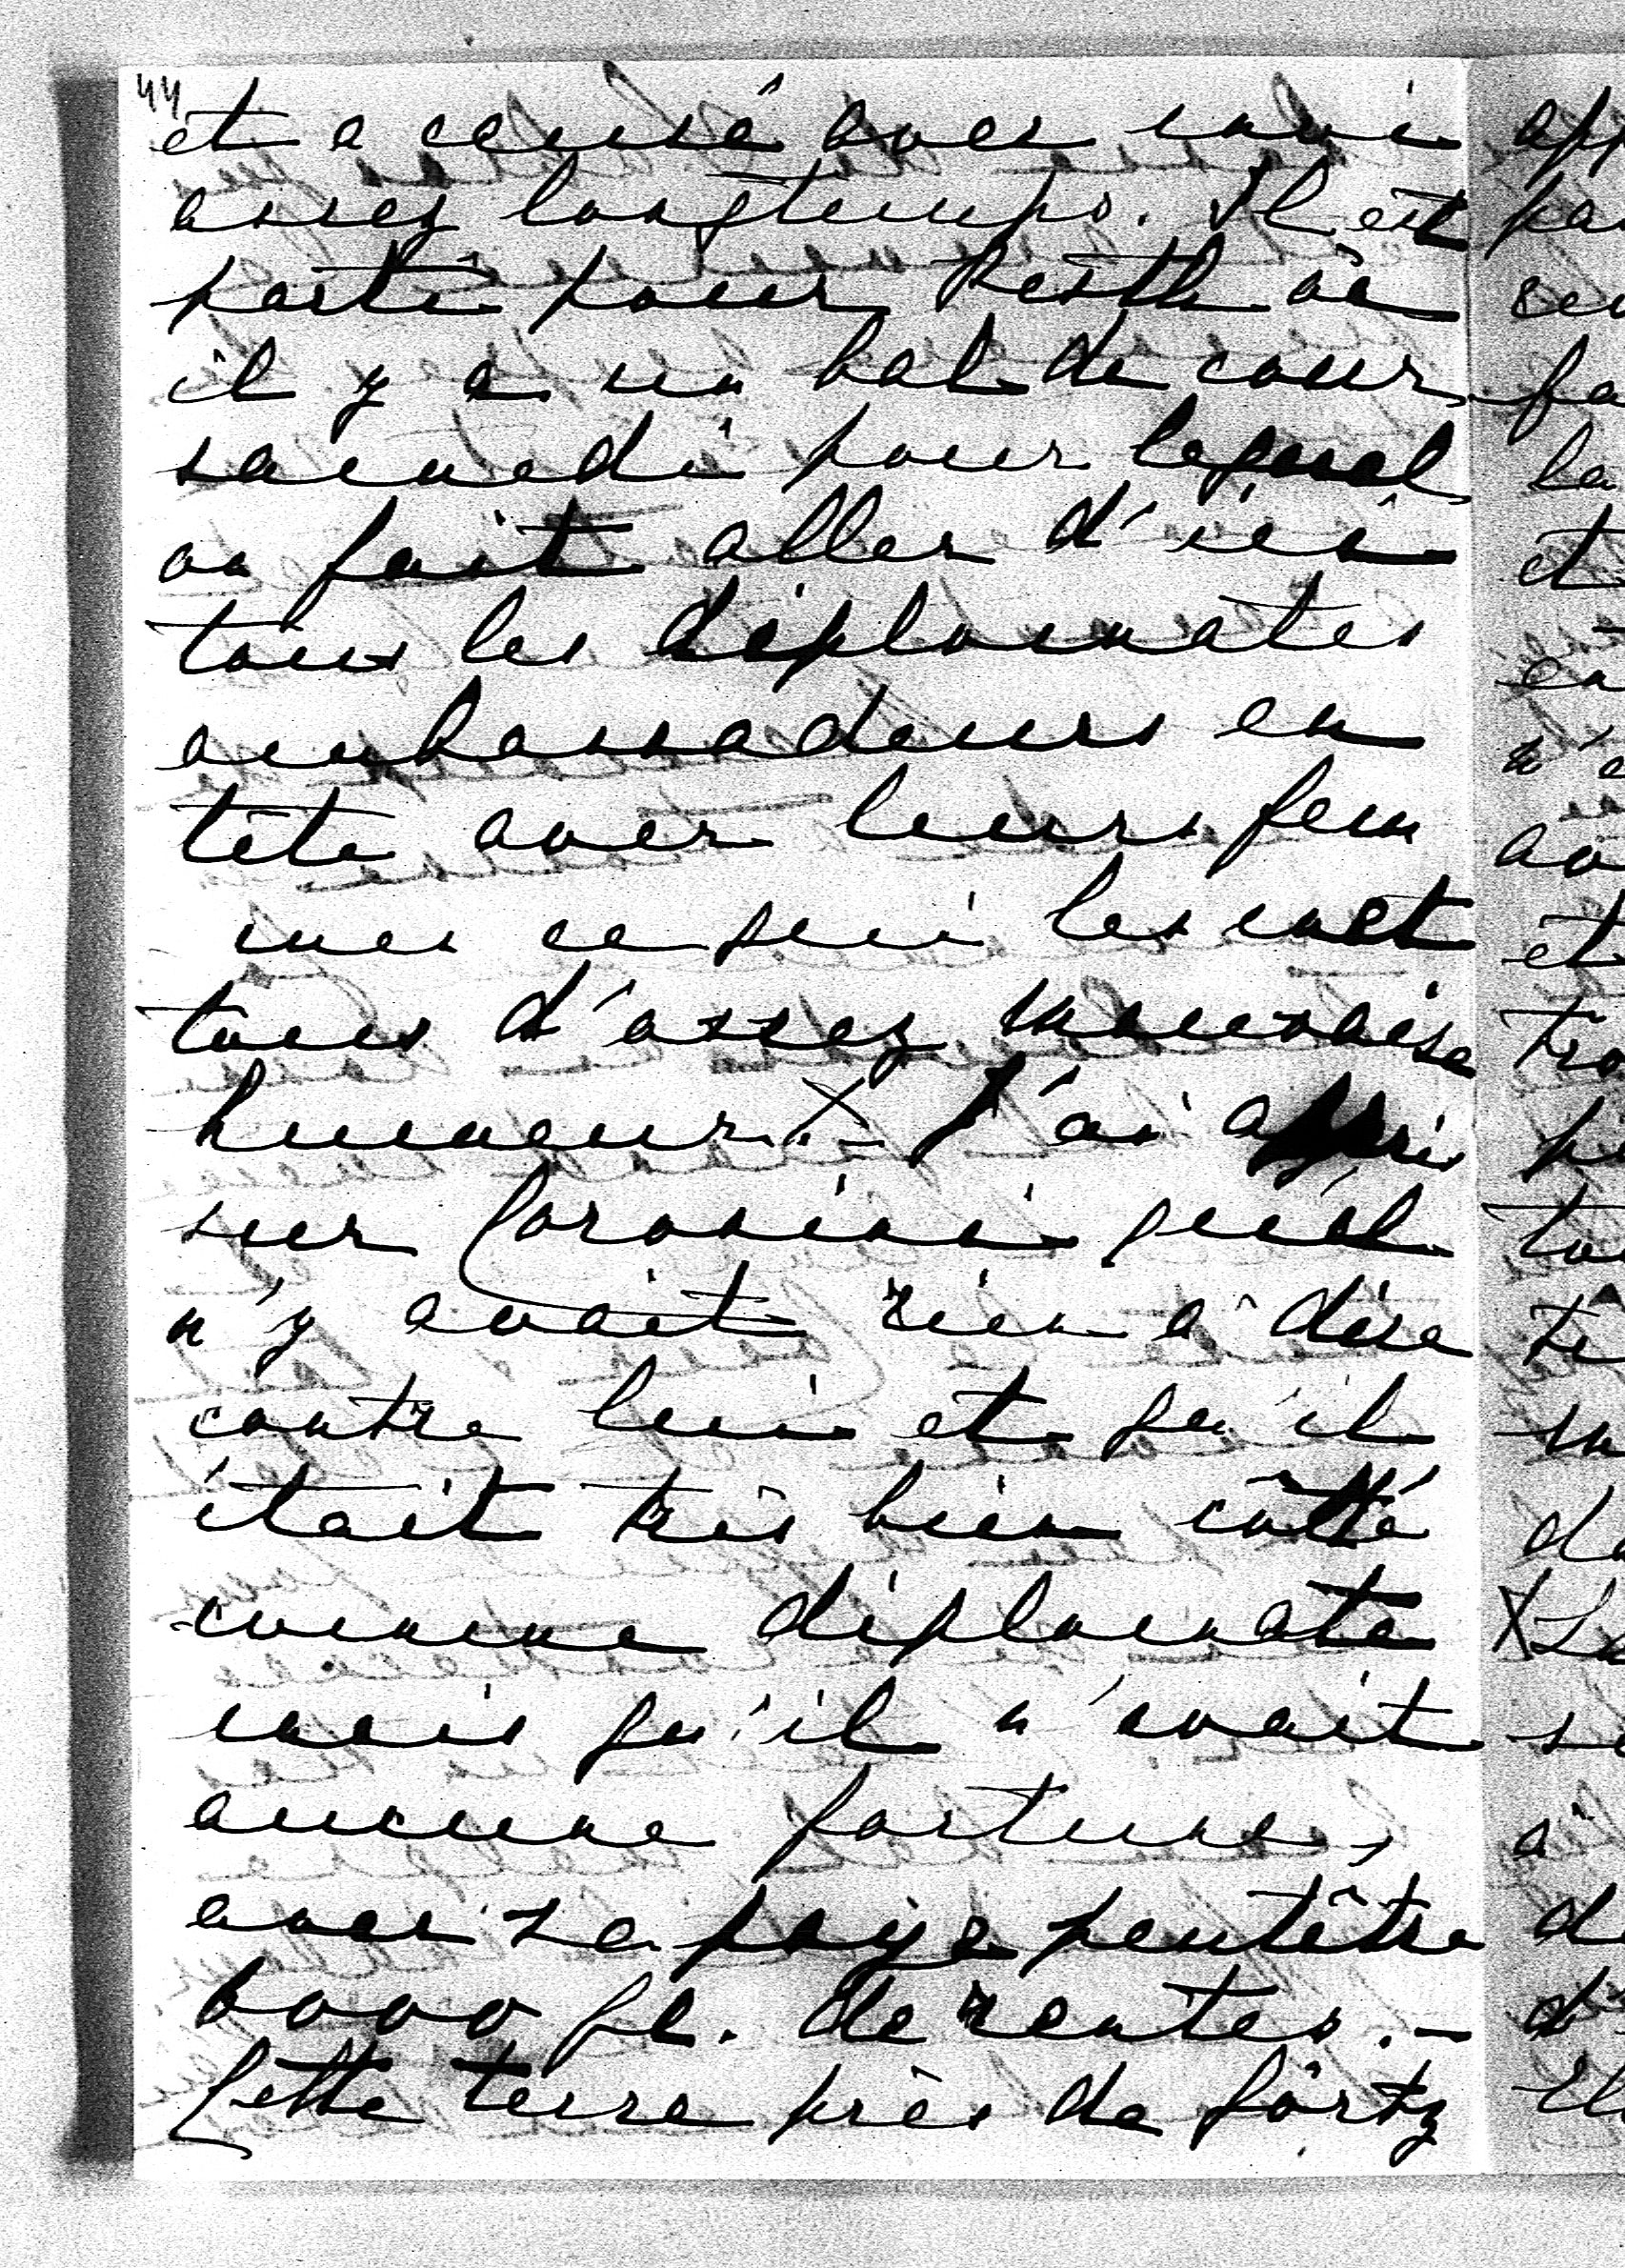 44
et a causé avec moi
assez longtemps. Il est
parti pour Pesth où
il y a un bal de cour
samedi pour lequel
on fait aller d'ici
tous les diplomates
ambassadeurs en
tête avec leurs fem
mes ce qui les met
tous d'assez mauvaise
humeur X.- J'ai appris
sur Coronini qu'il
n'y avait rien à dire
contre lui et qu'il
était très bien côtté
comme diplomate
mais qu'il n'avait
aucune fortune,
avec sa paye peutêtre
6000 fl. de rentes.-
Cette terre près de Görtz